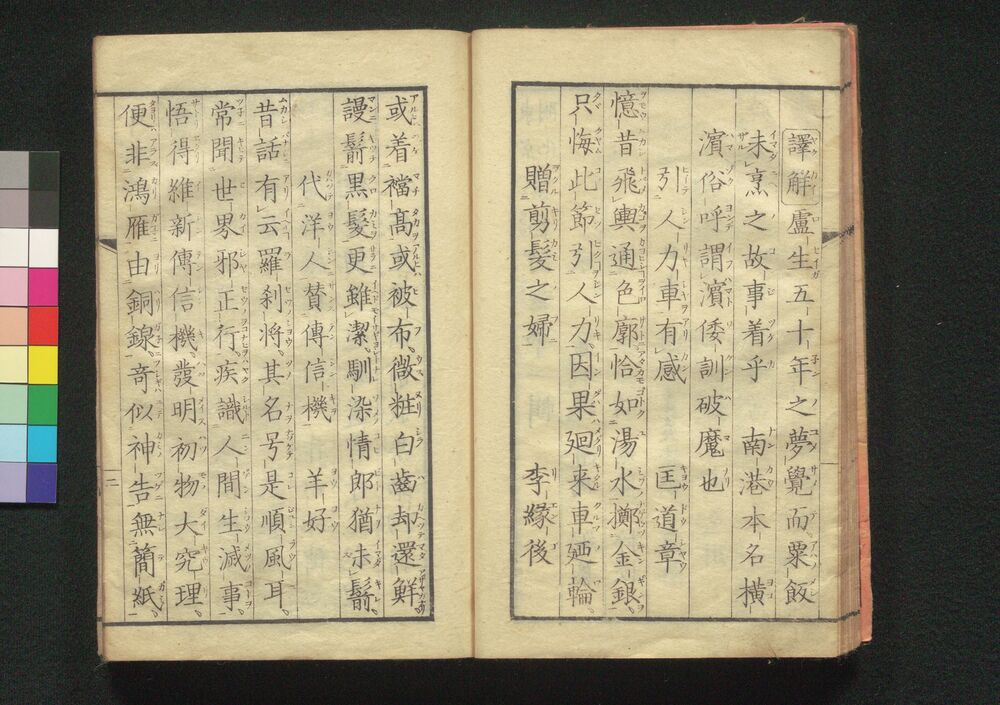 譯解盧生五十年之夢覺而粟飯
未烹之故事着乎 南港本名横
濱俗呼謂濱倭訓破魔也
引人力車有感 匡道章
憶昔飛輿通色廓恰如湯水擲金銀
只悔此節引人力因果廻来車廼輪
贈剪髮之婦 李縁後
或着襠髙或被布微粧白齒却還鮮
謾鬋黒髮更雖潔馴染情郎猶未鬋
代洋人賛傳信機 羊好
昔話有云羅刹将其名号是順風耳
常聞世界邪正行疾識人間生滅事
悟得維新傳信機發明初物大究理
便非鴻雁由銅線竒似神告無簡紙
二